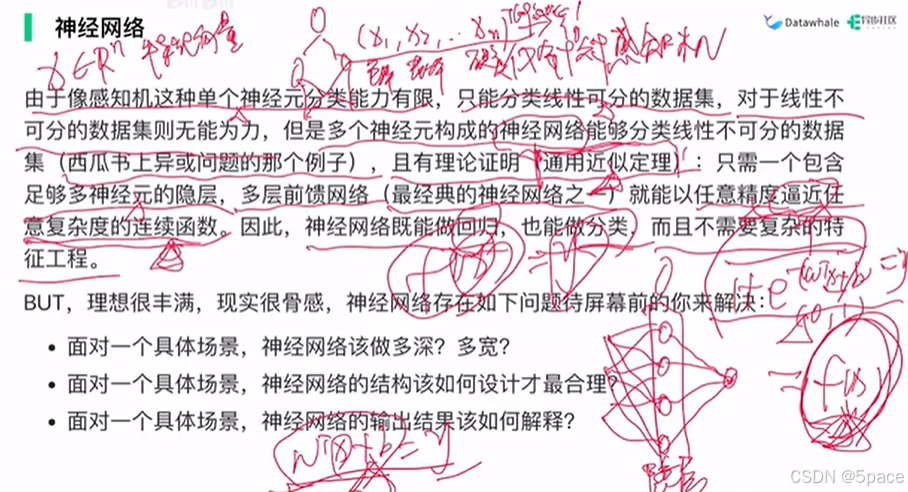 神经网络
Datawhale 异步社区
由于像感知机这种单个神经元分类能力有限，只能分类线性可分的数据集，对于线性不
可分的数据集则无能为力，但是多个神经元构成的神经网络能够分类线性不可分的数据
集（西瓜书上异或问题的那个例子），且有理论证明（通用近似定理）：只需一个包含
足够多神经元的隐层，多层前馈网络（最经典的神经网络之一）就能以任意精度逼近任
意复杂度的连续函数。因此，神经网络既能做回归，也能做分类，而且不需要复杂的特
征工程。
BUT，理想很丰满，现实很骨感，神经网络存在如下问题待屏幕前的你来解决：
• 面对一个具体场景，神经网络该做多深？多宽？
• 面对一个具体场景，神经网络的结构该如何设计才最合理？
• 面对一个具体场景，神经网络的输出结果该如何解释？
隐层
CSDN @5pace